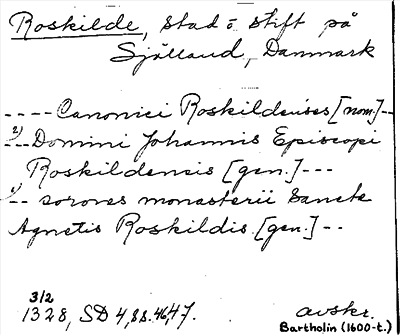 Roskilde, stad o. stift på
Själland, Danmark
---- Canonici Roskildenses [nom.] --
2) -- Domini Johannis Episcopi
Roskildensis [gen.] ---
1) -- sorores monasterii Sancte
Agnetis Roskildis. [gen.] --
3/2
1328, SD 4, s. 46, 47. avskr.
Bartholin (1600-t.)